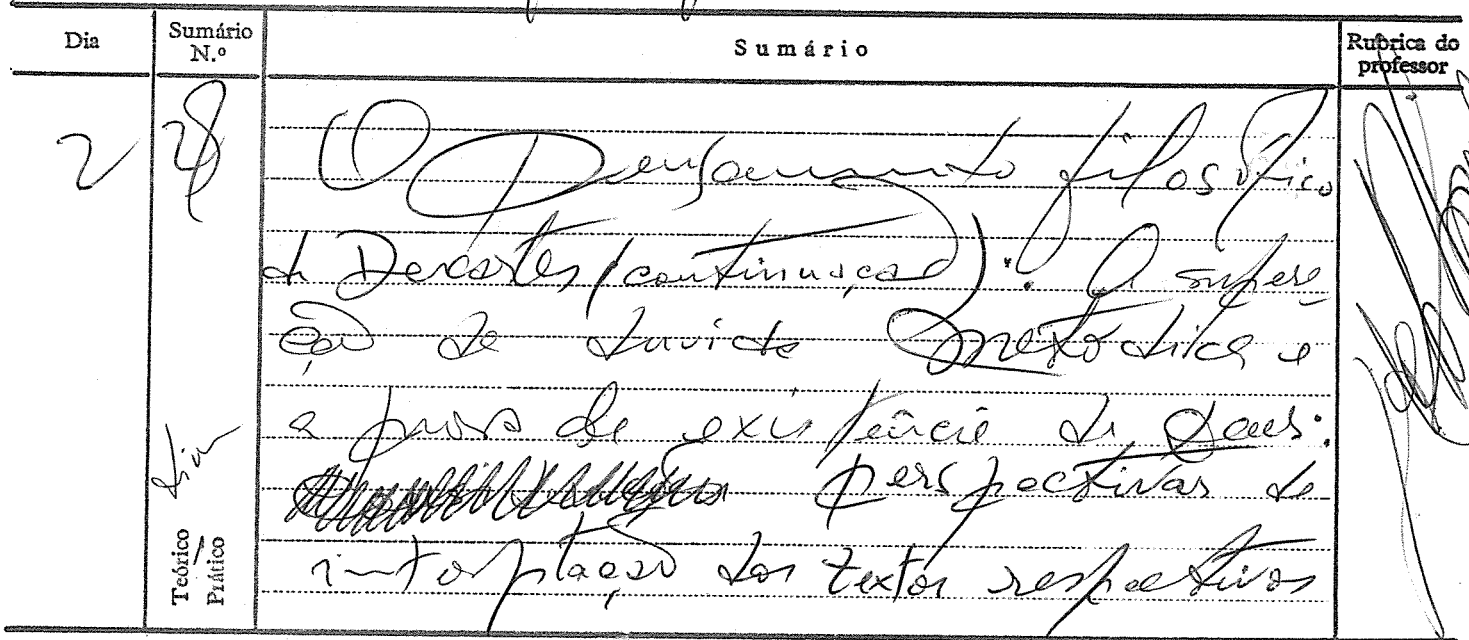 Dia
Sumário N.º
Sumário
Rubrica do professor
2
28
O pensamento filosófico
de Descartes (continuação): A supera-
ção da dúvida metódica e
a prova da existência de Deus:
perspectivas de
interptação dos textos respectivos
Teórico
Prático